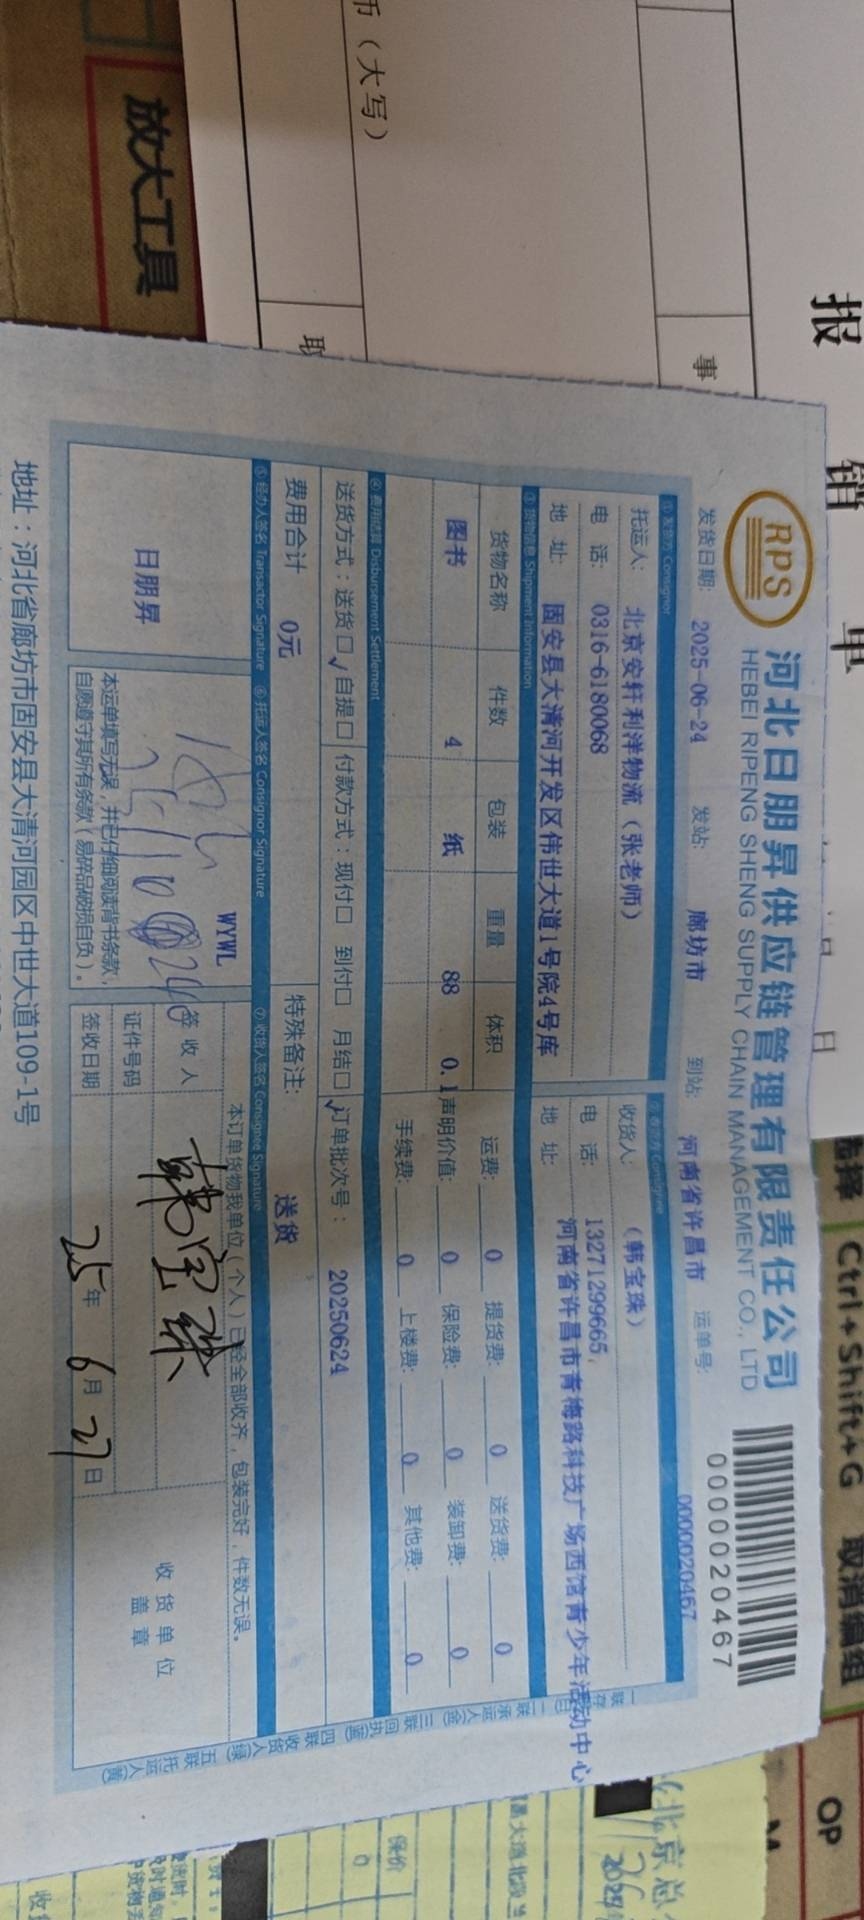 报 销 单
事
币（大写）
取
放大工具
选择 Ctrl+Shift+G 取消编组
OP
RPS
河北日朋昇供应链管理有限责任公司
HEBEI RIPENG SHENG SUPPLY CHAIN MANAGEMENT CO., LTD
0000020467
发货日期: 2025-06-24 发站: 廊坊市 到站: 河南省许昌市 运单号: 0000020467
①发货方 Consignor
托运人: 北京安轩利洋物流（张老师）
电 话: 0316-6180068
地 址: 固安县大清河开发区伟世大道1号院4号库
收货人: （韩宝珠）
电 话: 13271299665,
地 址: 河南省许昌市青梅路科技广场西馆青少年活动中心
③货物信息 Shipment Information
货物名称 件数 包装 重量 体积
图书 4 纸 88 0.1
运费: 0 提货费: 0 送货费: 0
声明价值: 0 保险费: 0 装卸费: 0
手续费: 0 上楼费: 0 其他费: 0
④费用结算 Disbursement Settlement
送货方式：送货□✓自提□ 付款方式：现付□ 到付□ 月结□✓ 订单批次号： 20250624
费用合计 0元 特殊备注: 送货
⑤经办人签名 Transactor Signature ⑥托运人签名 Consignor Signature ⑦收货人签名 Consignee Signature
日朋昇
WYWL
本运单填写无误，并已仔细阅读背书条款，
自愿遵守其所有条款（易碎品破损自负）。
本订单货物我单位（个人）已经全部收齐，包装完好，件数无误。
签 收 人 韩宝珠
证件号码
签收日期 25年 6月 27日
收 货 单 位
盖 章
地址：河北省廊坊市固安县大清河园区中世大道109-1号
保价
0